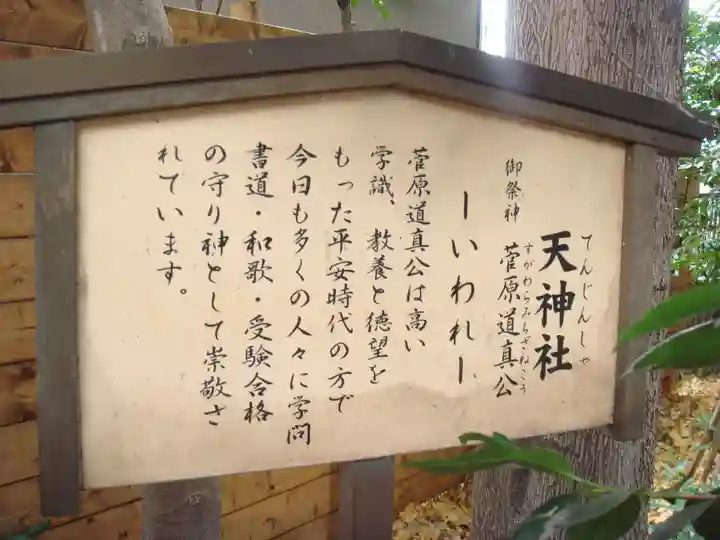 てんじんしゃ
天神社
御祭神
すがわらみちざねこう
菅原道真公
ーいわれー
菅原道真公は高い
学識、教養と徳望を
もった平安時代の方で
今日も多くの人々に学問
書道・和歌・受験合格
の守り神として崇敬さ
れています。